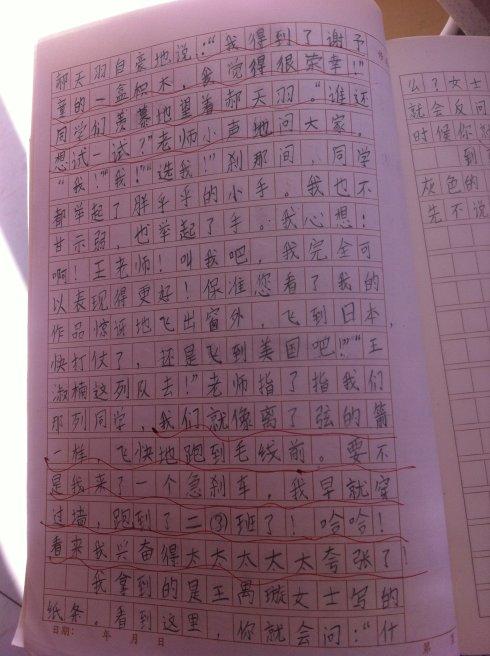 郝天羽自豪地说：“我得到了谢予
童的一盒积木，我觉得很荣幸！”
同学们羡慕地望着郝天羽。“谁还
想试一试？”老师小声地问大家，
“我！”“我！”“选我！”刹那间，同学
都举起了胖乎乎的小手。我也不
甘示弱，也举起了手。我心想：
啊！王老师！叫我吧，我完全可
以表现得更好！保准您看了我的
作品惊讶地飞出窗外，飞到日本，
快打仗了，还是飞到美国吧！”“王
淑楠这列队去！”老师指了指我们
那列同学，我们就像离了弦的箭
一样，飞快地跑到毛线前。要不
是我来了一个急刹车，我早就穿
过墙，跑到了二③班了！哈哈！
看来我兴奋得太太太太太夸张了！
我拿到的是王禹璇女士写的
纸条。看到这里，你就会问：“什
日期： 年 月 日 第 页
么？女士
就会反问
时候你
到
灰色的
先不说